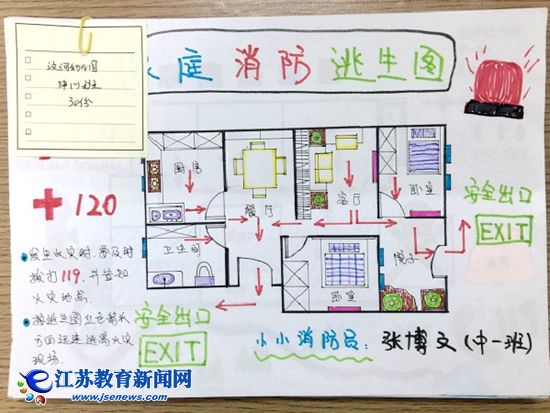 幼儿园
中(1)班
30份
庭 消 防 逃生图
厨房
餐厅
客厅
卧室
安全出口
EXIT
120
卫生间
卧室
发生火灾时，要及时
拨打119，并告知
火灾地点.
按逃生图
方向迅速逃离火灾
现场.
安全出口
EXIT
小小消防员：张博文(中一班)
江苏教育新闻网
www.jsenews.com